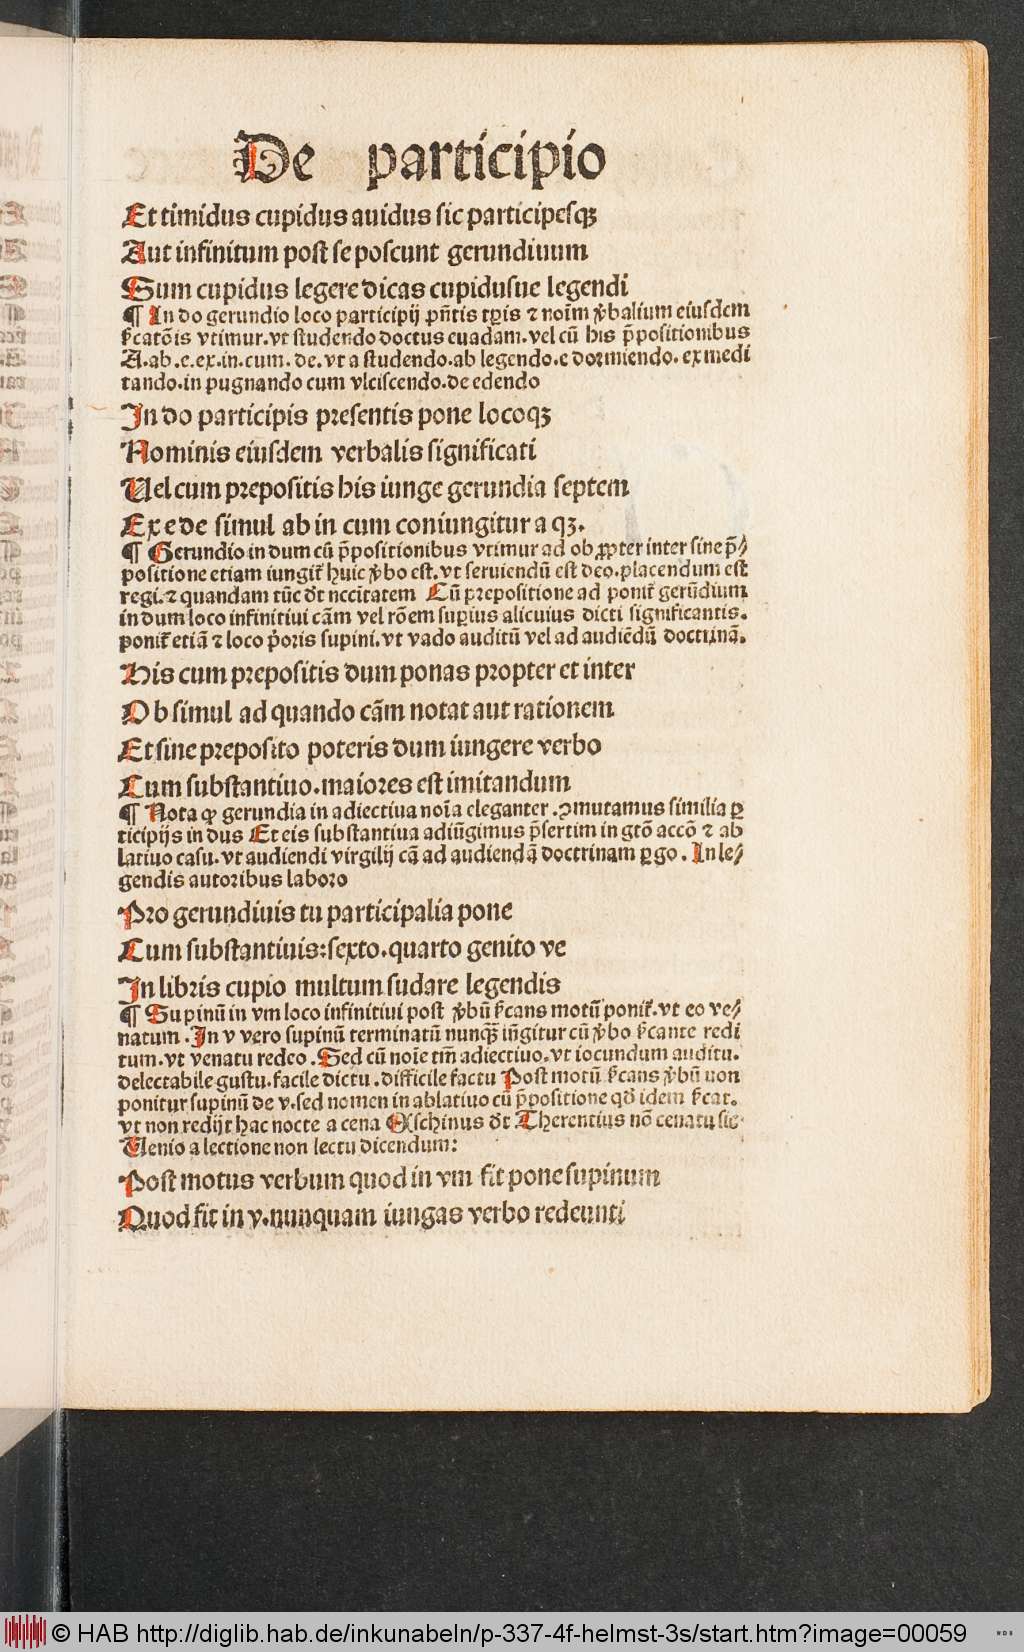 De participio
Et timidus cupidus auidus sic participesqꝫ
Aut infinitum post se poscunt gerundiuum
Sum cupidus legere dicas cupidusue legendi
¶ In do gerundio loco participij pñtis tꝑis ⁊ noīm ꝟbalium eiusdem
ẜcatōis vtimur. vt studendo doctus euadam. vel cū his p̄positionibus
A. ab. e. ex. in. cum. de. vt a studendo. ab legendo. e dormiendo. ex medi
tando. in pugnando cum vlciscendo. de edendo
In do participis presentis pone locoqꝫ
Nominis eiusdem verbalis significati
Uel cum prepositis his iunge gerundia septem
Ex e de simul ab in cum coniungitur a qꝫ.
¶ Gerundio in dum cū p̄positionibus vtimur ad ob ꝓpter inter sine p̄⸗
positione etiam iungit᷑ huic ꝟbo est. vt seruiendū est deo. placendum est
regi. ⁊ quandam tūc dr̄t nccitatem Cū prepositione ad ponit᷑ gerūdium
in dum loco infinitiui cām vel rōem supius alicuius dicti significantis.
ponit᷑ etiā ⁊ loco p̄oris supini. vt vado auditū vel ad audiēdū doctrinā.
His cum prepositis dum ponas propter et inter
Ob simul ad quando cām notat aut rationem
Et sine preposito poteris dum iungere verbo
Cum substantiuo. maiores est imitandum
¶ Nota ꝙ gerundia in adiectiua noīa eleganter ꝯmutamus similia ꝑ
ticipijs in dus Et eis substantiua adiūgimus p̄sertim in gtō accō ⁊ ab
latiuo casu. vt audiendi virgilij cā ad audiendā doctrinam ꝑgo. In le⸗
gendis autoribus laboro
Pro gerundiuis tu participalia pone
Cum substantiuis: sexto. quarto genito ve
In libris cupio multum sudare legendis
¶ Supinū in vm loco infinitiui post ꝟbū ẜcans motū ponit᷑. vt eo ve⸗
natum. In v vero supinū terminatū nunqꝫ̄ iūgitur cū ꝟbo ẜcante redi
tum. vt venatu redeo. Sed cū noīe tm̄ adiectiuo. vt iocundum auditu.
delectabile gustu. facile dictu. difficile factu Post motū ẜcans ꝟbū non
ponitur supinū de v. sed nomen in ablatiuo cū p̄positione qd̄ idem ẜcat.
vt non redijt hac nocte a cena Eschinus dr̄t Therentius nō cenatu sic
Uenio a lectione non lectu dicendum:
Post motus verbum quod in vm fit pone supinum
Quod fit in v. nunquam iungas verbo redeunti
© HAB http://diglib.hab.de/inkunabeln/p-337-4f-helmst-3s/start.htm?image=00059